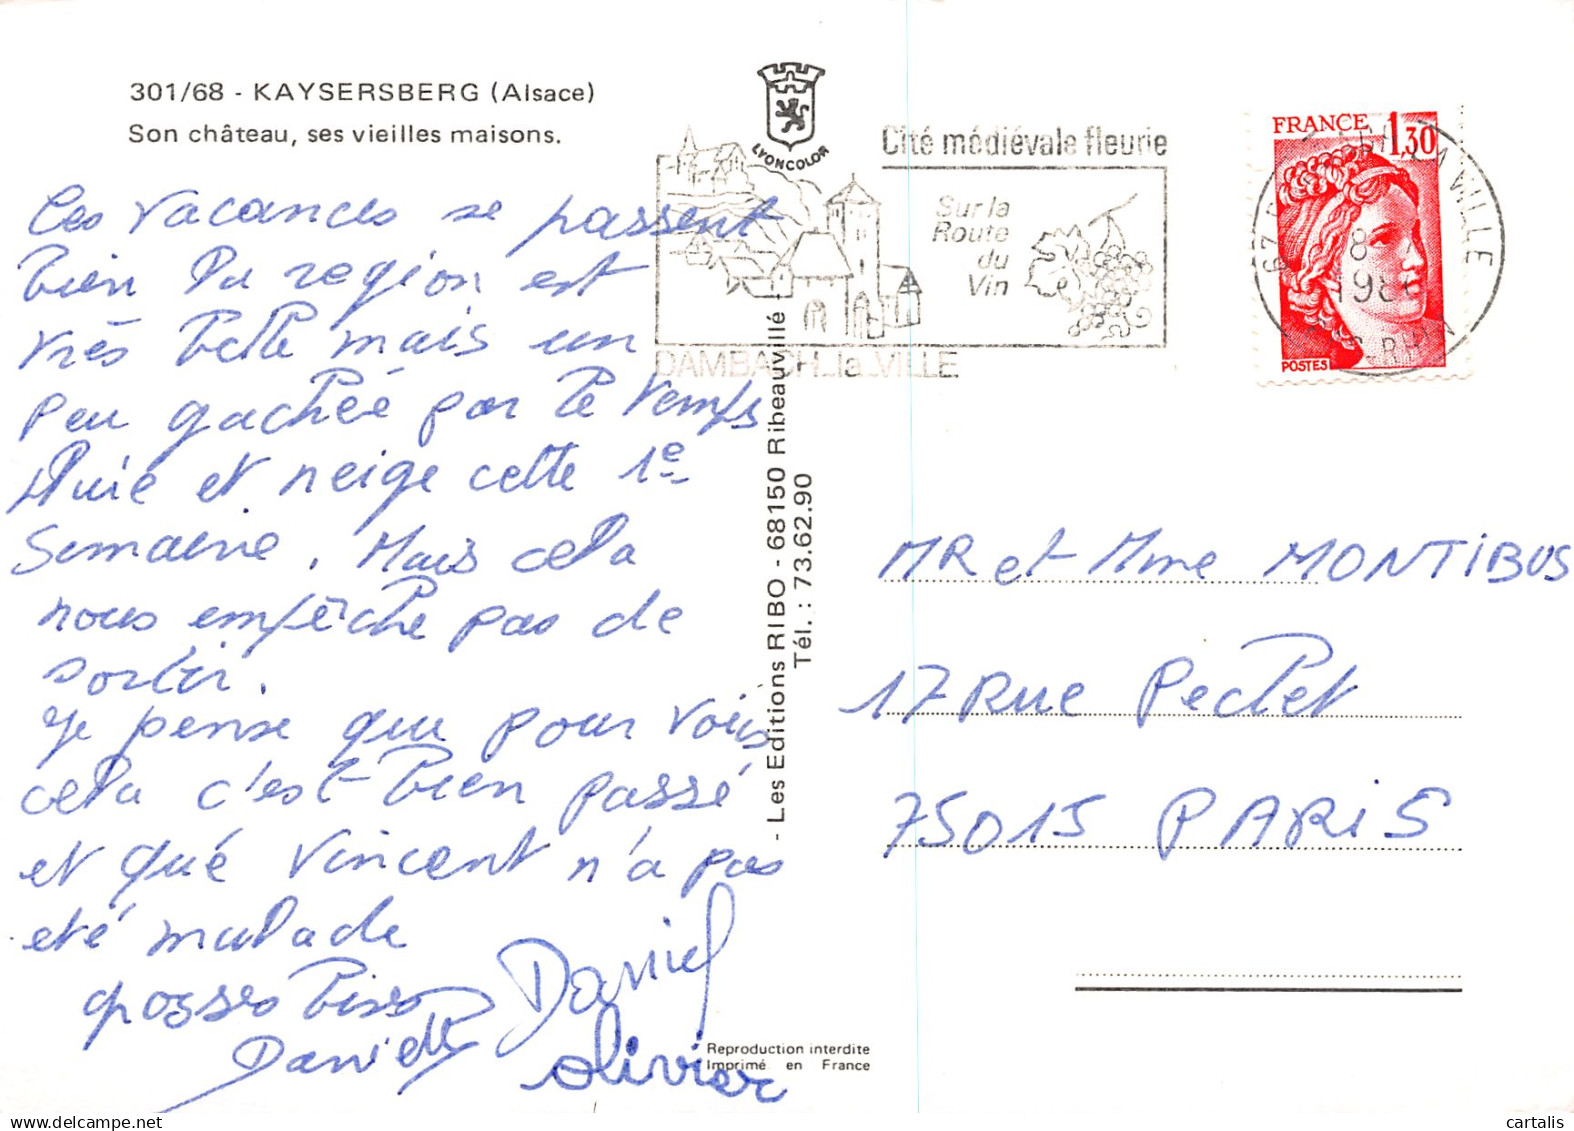 301/68 - KAYSERSBERG (Alsace)
Son château, ses vieilles maisons.
LYONCOLOR
Cité médiévale fleurie
Sur la
Route
du
Vin
DAMBACH_la_VILLE
FRANCE 1,30
POSTES
67
8
198
Les vacances se passent
bien la region est
très belle mais un
peu gachée par le temps
pluie et neige cette 1e
Semaine. Mais cela
nous empêche pas de
sortir.
Je pense que pour vous
cela c'est bien passé
et que Vincent n'a pas
été malade
grosses bises
Danielle
Daniel
Olivier
- Les Editions RIBO - 68150 Ribeauvillé -
Tél. : 73.62.90
MR et Mme MONTIBUS
17 Rue Peclet
75015 PARIS
Reproduction interdite
Imprimé en France
cartalis